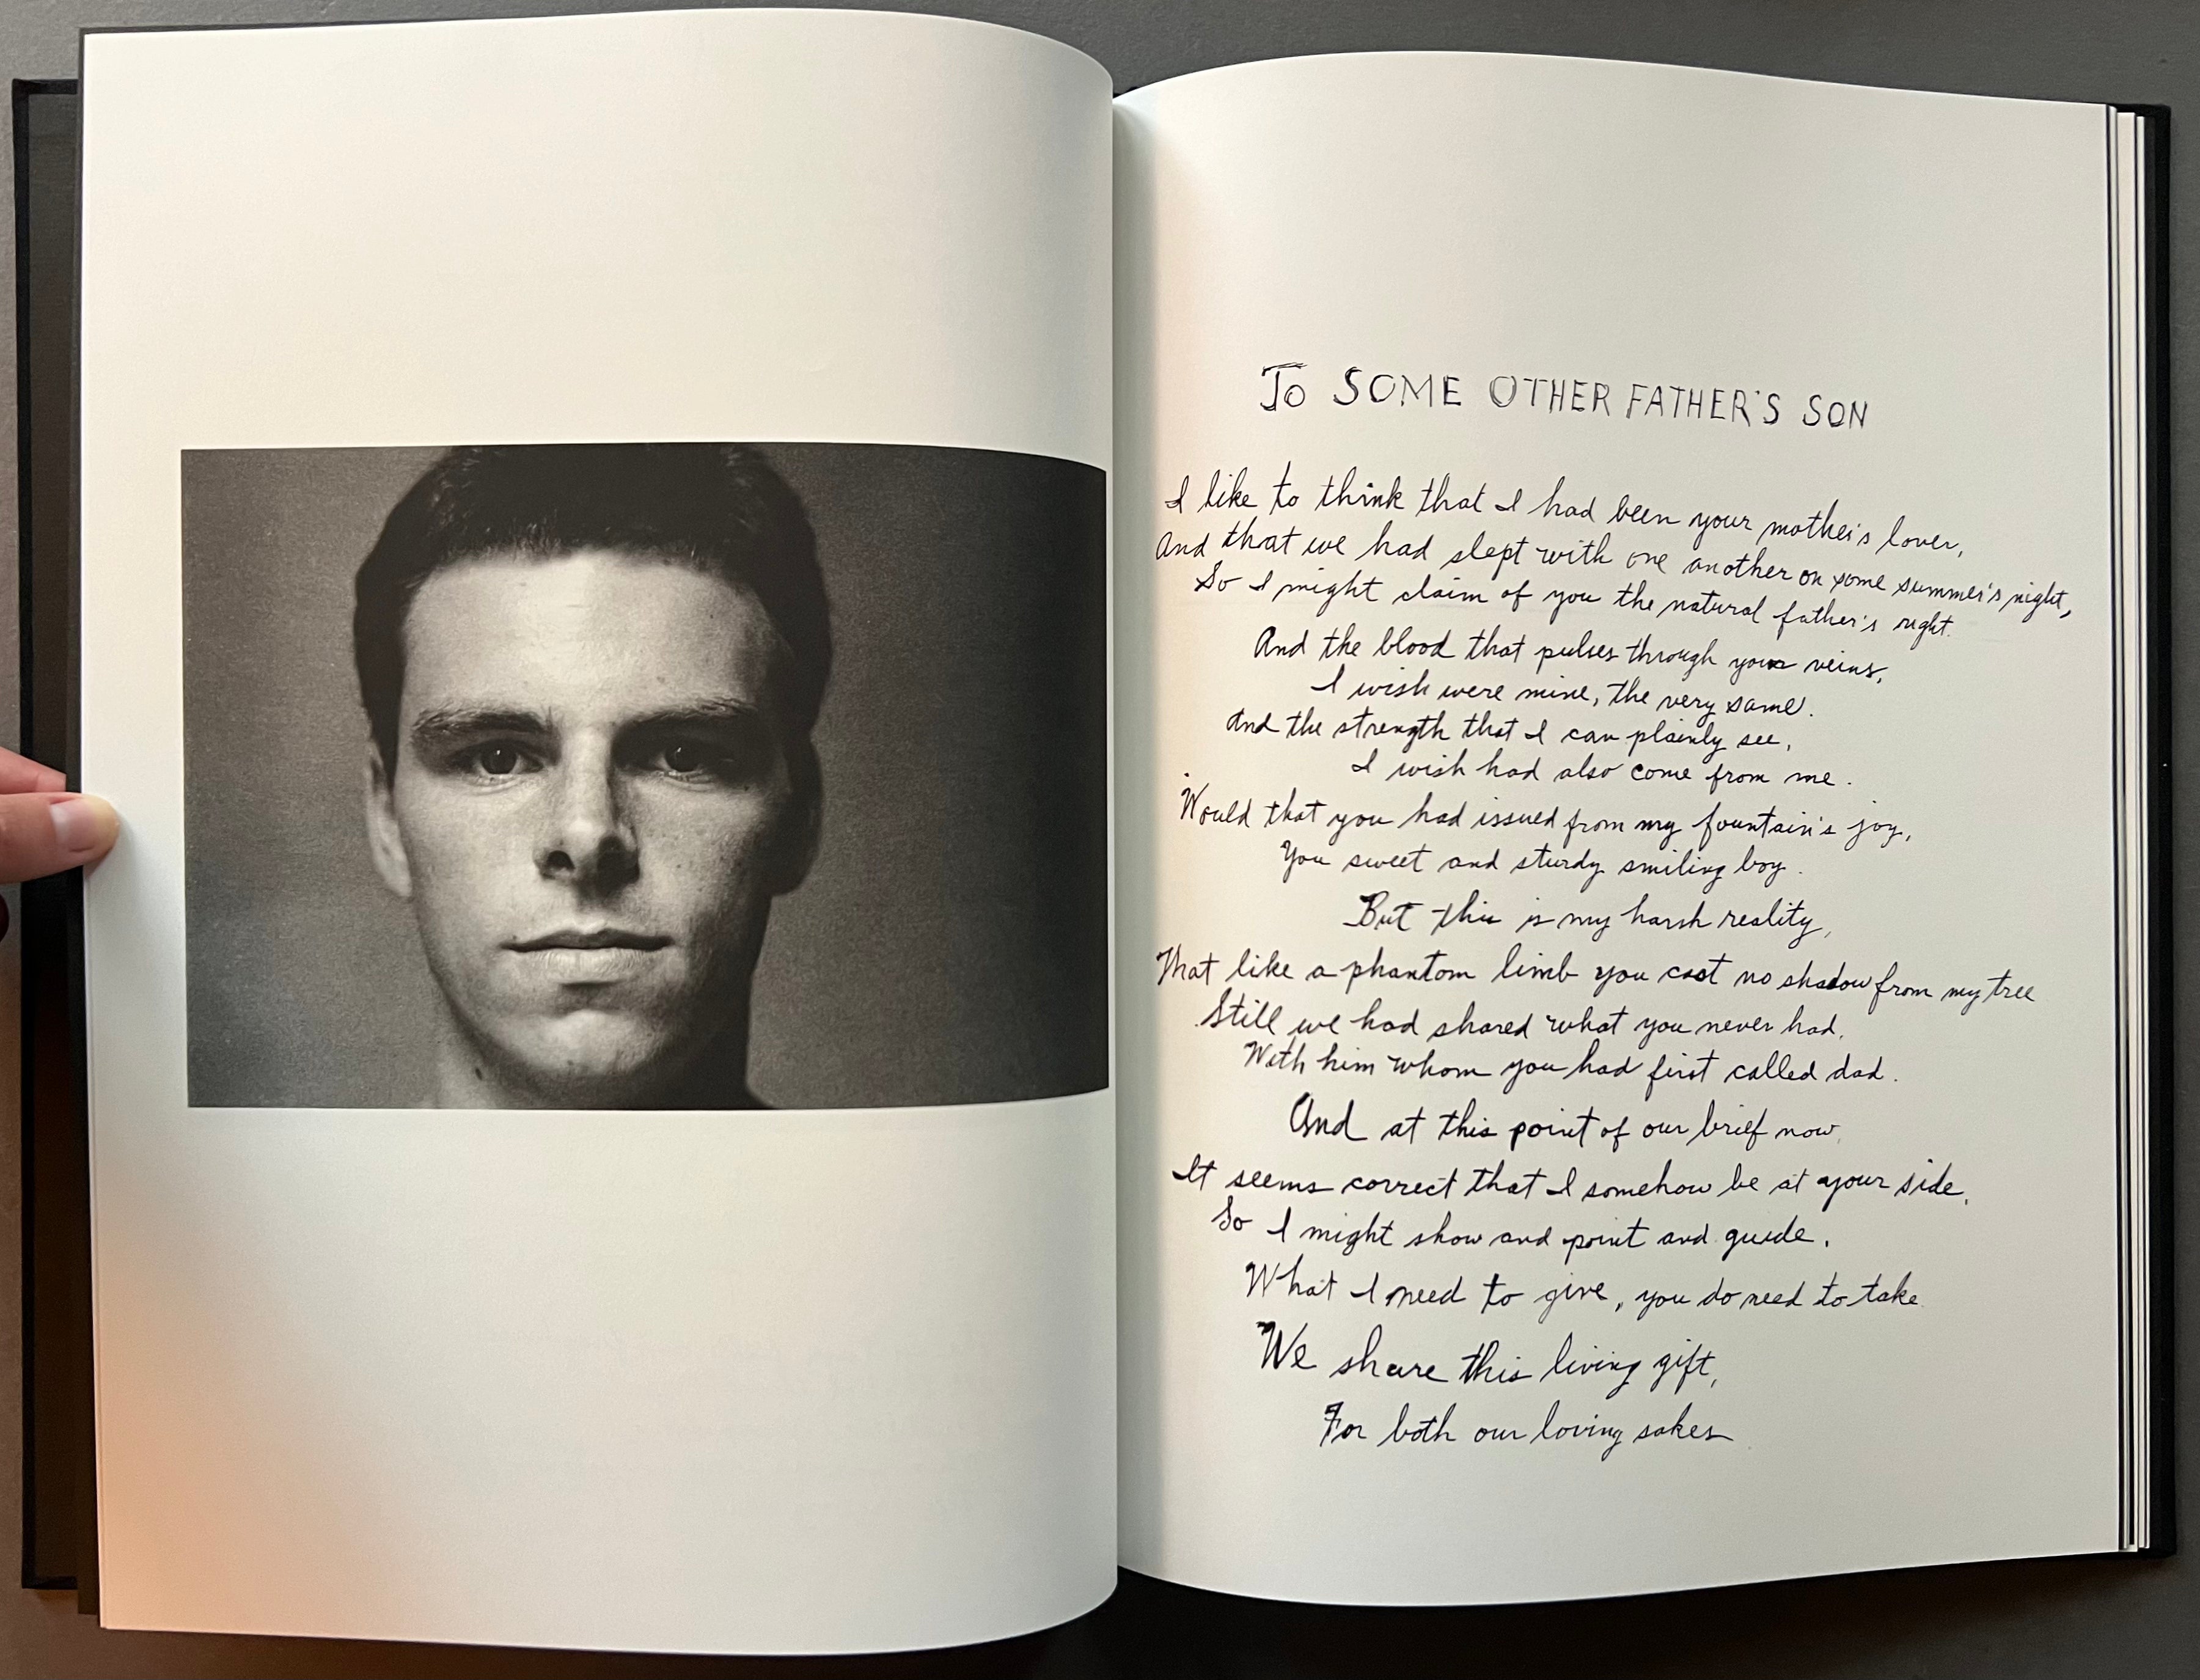 To SOME OTHER FATHER'S SON
I like to think that I had been your mother's lover,
And that we had slept with one another on some summer's night,
So I might claim of you the natural father's right.
And the blood that pulses through your veins,
I wish were mine, the very same.
And the strength that I can plainly see,
I wish had also come from me.
Would that you had issued from my fountain's joy,
You sweet and sturdy smiling boy.
But this is my harsh reality,
That like a phantom limb you cast no shadow from my tree
Still we had shared what you never had,
With him whom you had first called dad.
And at this point of our brief now,
It seems correct that I somehow be at your side,
So I might show and point and guide.
What I need to give, you do need to take
We share this living gift,
For both our loving sakes